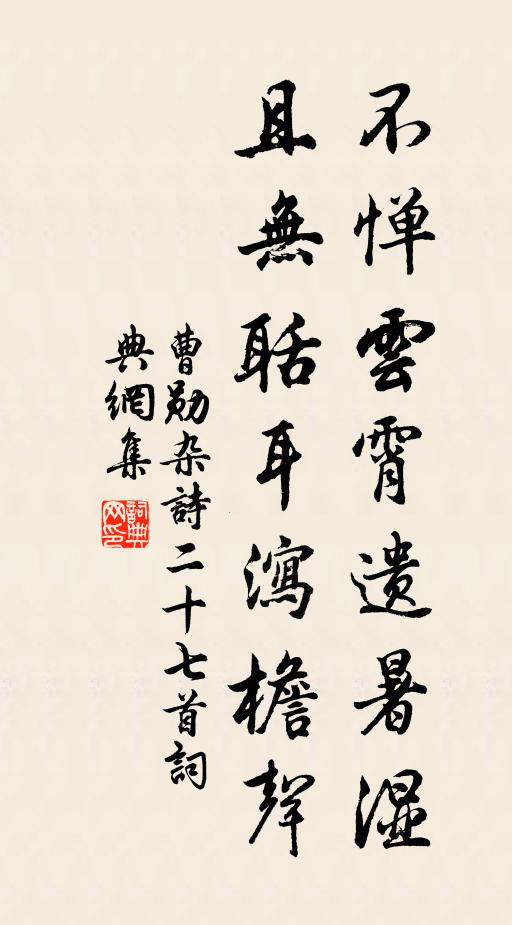 不惮雲霄遗暑湿
且無聒耳瀉檐聲
曹勋杂詩二十七首詞
典網集
詞典网印